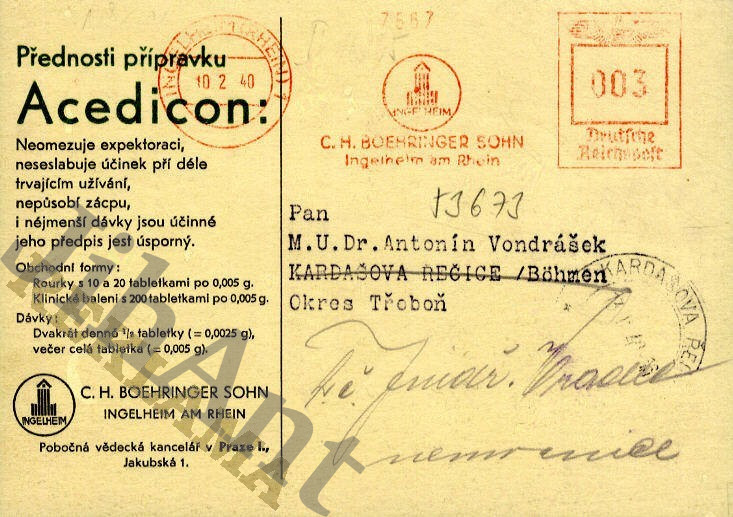 Přednosti přípravku
Acedicon:
Neomezuje expektoraci,
neseslabuje účinek pří déle
trvajícím užívání,
nepůsobí zácpu,
i nejmenší dávky jsou účinné
jeho předpis jest úsporný.
Obchodní formy:
Rourky s 10 a 20 tabletkami po 0,005 g.
Klinické balení s 200 tabletkami po 0,005 g.
Dávky:
Dvakrát denně ½ tabletky (= 0,0025 g),
večer celá tabletka (= 0,005 g).
INGELHEIM
C. H. BOEHRINGER SOHN
INGELHEIM AM RHEIN
Pobočná vědecká kancelář v Praze I.,
Jakubská 1.
10 2 40
INGELHEIM
C. H. BOEHRINGER SOHN
Ingelheim am Rhein
003
Deutsche
Reichspost
13673
Pan
M.U.Dr.Antonín Vondrášek
KARDAŠOVA ŘEČICE /Böhmen
Okres Třeboň
KARDAŠOVA ŘE
Jindř. Hradec
nemocnice